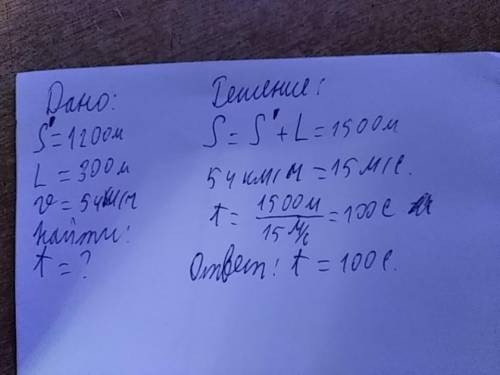 Дано:
S' = 1200м
L = 300м
v = 54км/ч
Найти:
t = ?
Решение:
S = S' + L = 1500м
54 км/ч = 15 м/с.
t = 1500м / 15 м/с = 100с
Ответ: t = 100с.